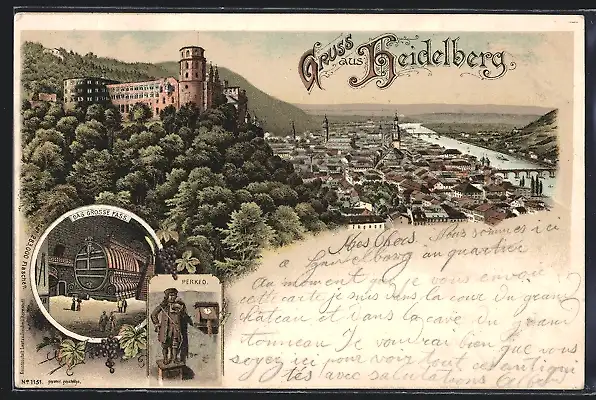 Gruss aus Heidelberg
DAS GROSSE FASS.
Flaschen.
PERKEO.
Mes Chers. Nous sommes ici
a Heidelberg au quartier
Au moment que je vous envoie
cette carte je suis dans la cour du grand
chateau et dans la cave du grand
tonneau Je vouvrai bien que vous
soyez ici pour voir tout cet antiqui
tés avec salutations
No 1151.